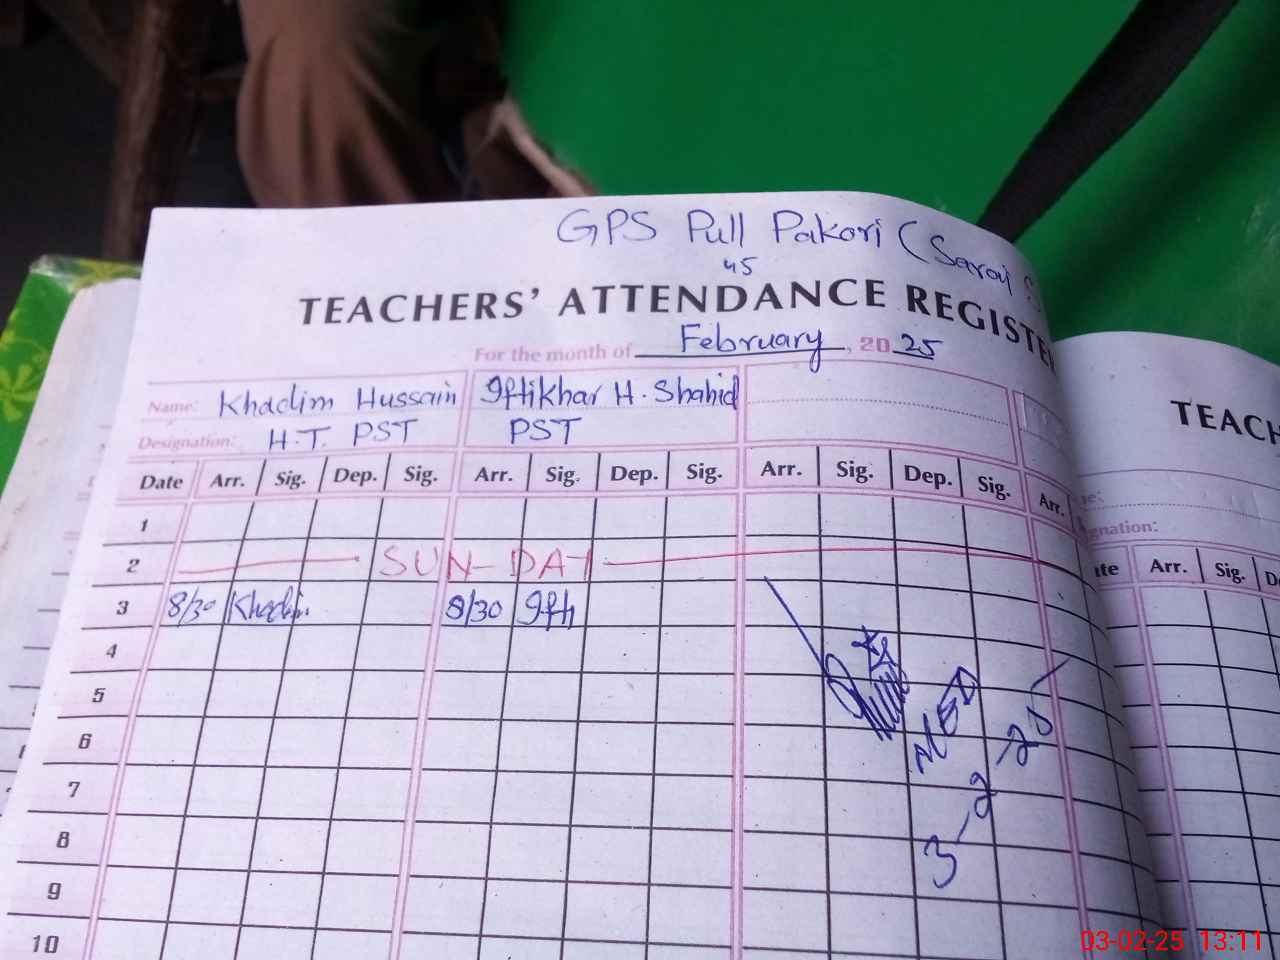 GPS Pull Pakori (Sarai S
45
TEACHERS' ATTENDANCE REGISTE
For the month of February, 2025
Name: Khadim Hussain Iftikhar H. Shahid
Designation: H.T. PST PST
Date Arr. Sig. Dep. Sig. Arr. Sig. Dep. Sig. Arr. Sig. Dep. Sig. Arr.
1
2 SUN-DAY
3 8/30 Khadim 8/30 Ifti
4
5
6
7
8
9
10
3-2-25
TEACH
me:
gnation:
ate Arr. Sig. De
03-02-25 13:11